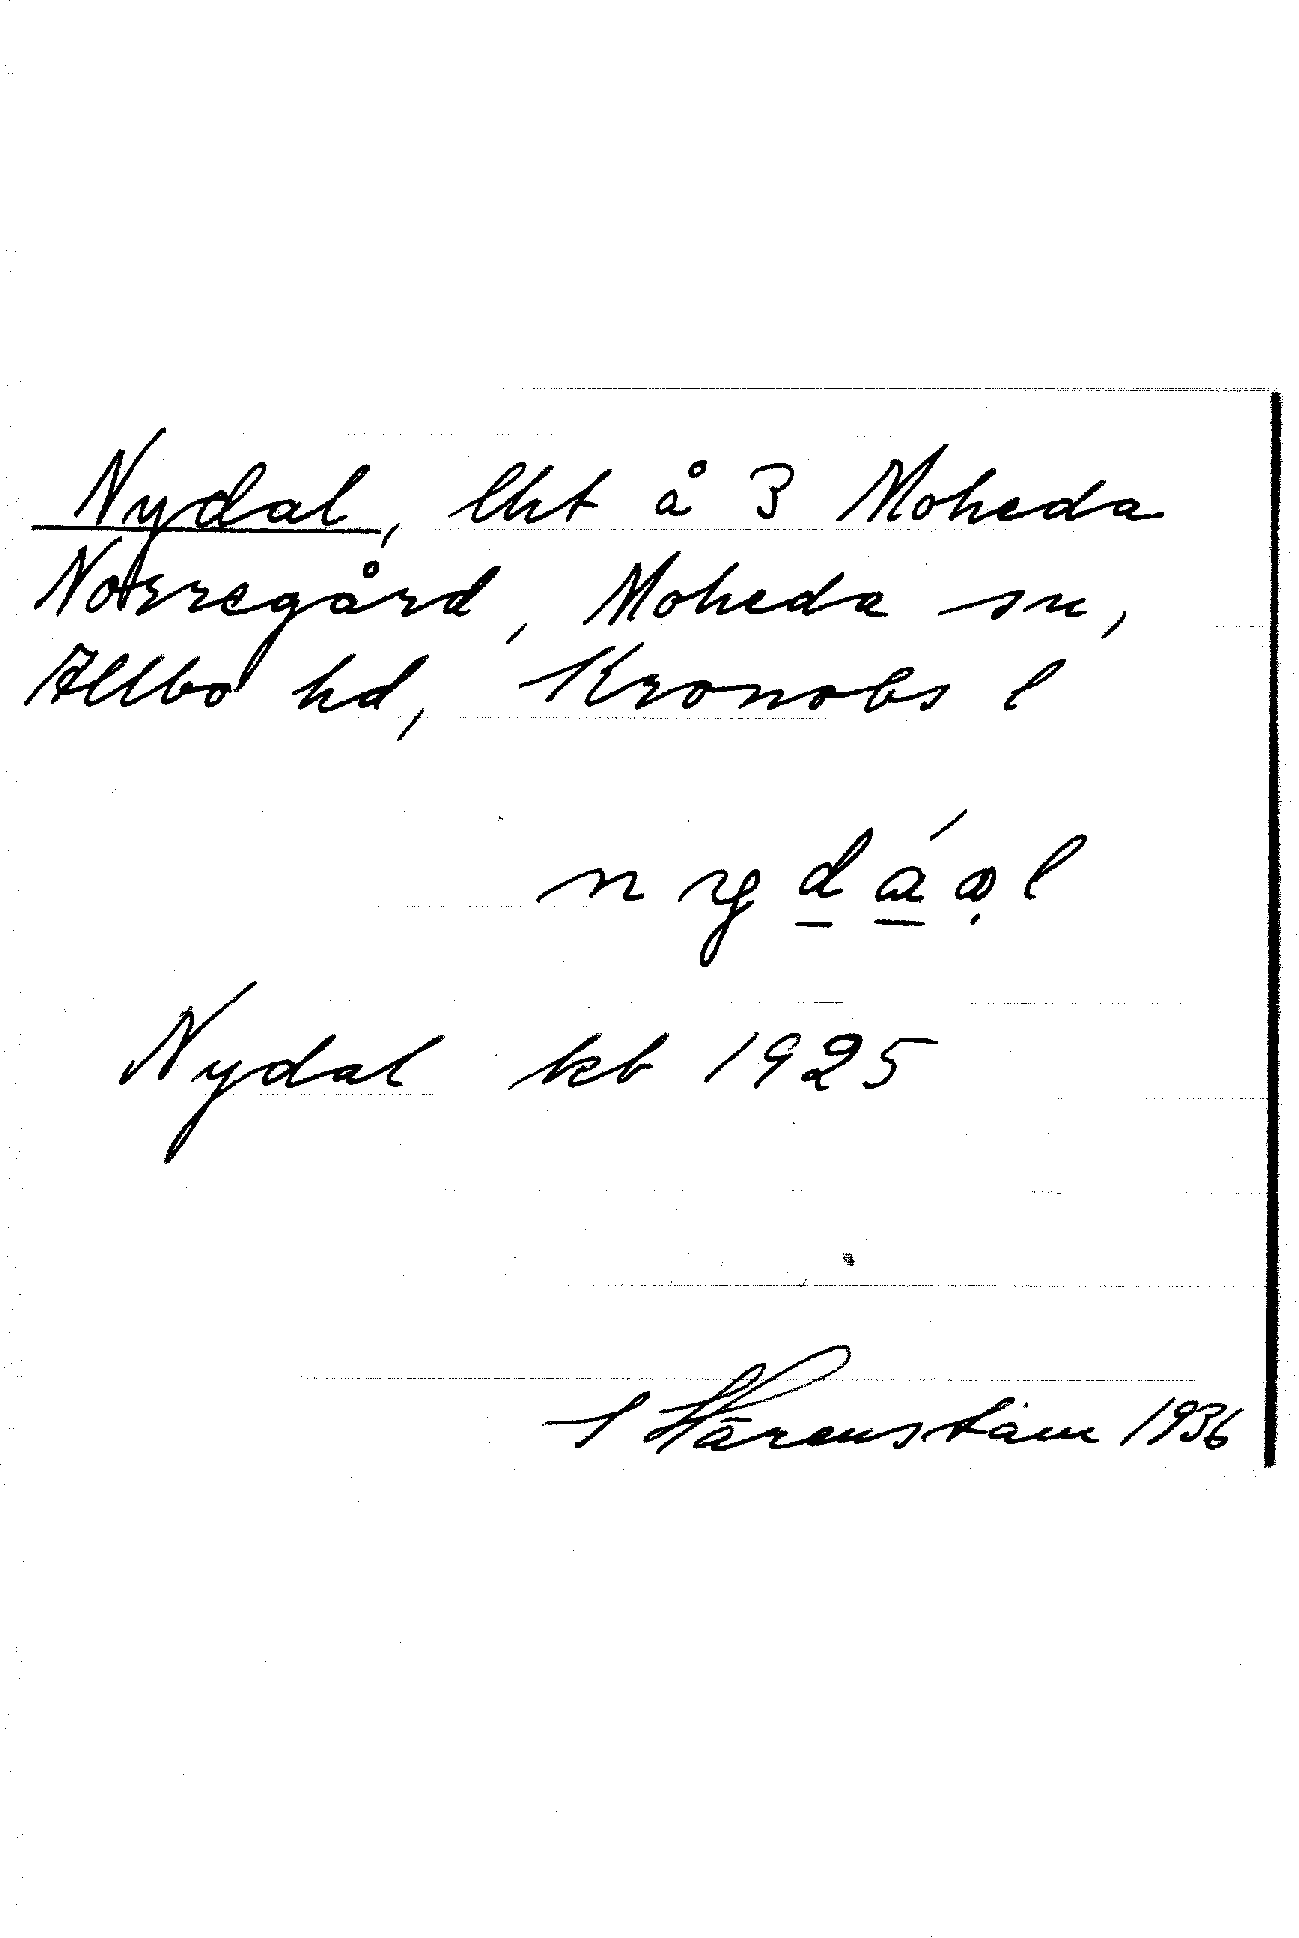 Nydal, lht å 3 Moheda
Norregård, Moheda sn,
Allbo hd, Kronobs l
Nydal kb 1925
S Härenstam 1936